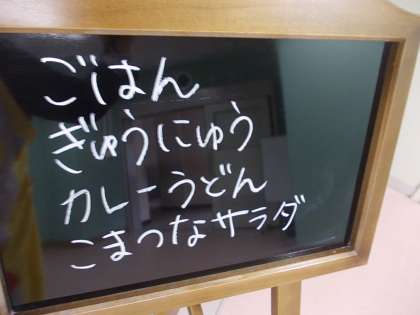 ごはん
ぎゅうにゅう
カレーうどん
こまつなサラダ